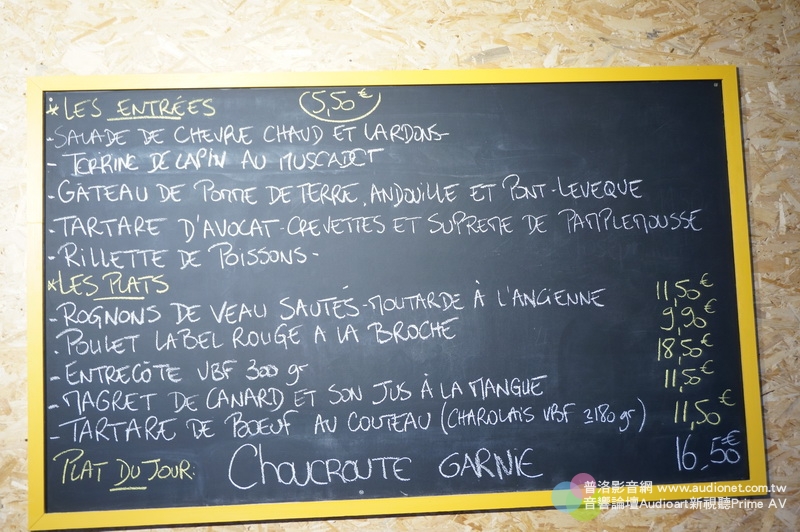 * LES ENTRÉES 5,50 €
- SALADE DE CHEVRE CHAUD ET LARDONS -
- TERRINE DE LAPIN AU MUSCADET
- GÂTEAU DE POMME DE TERRE, ANDOUILLE ET PONT-LEVEQUE
- TARTARE D'AVOCAT-CREVETTES ET SUPREME DE PAMPLEMOUSSE
- RILLETTE DE POISSONS -
* LES PLATS
- ROGNONS DE VEAU SAUTÉS-MOUTARDE À L'ANCIENNE 11,50 €
- POULET LABEL ROUGE A LA BROCHE 9,90 €
- ENTRECÔTE VBF 300 gr 18,50 €
- MAGRET DE CANARD ET SON JUS À LA MANGUE 11,50 €
- TARTARE DE BOEUF AU COUTEAU (CHAROLAIS VBF ±180 gr) 11,50 €
PLAT DU JOUR: CHOUCROUTE GARNIE 16,50 €
普洛影音網 www.audionet.com.tw
音響論壇Audioart新視聽Prime AV